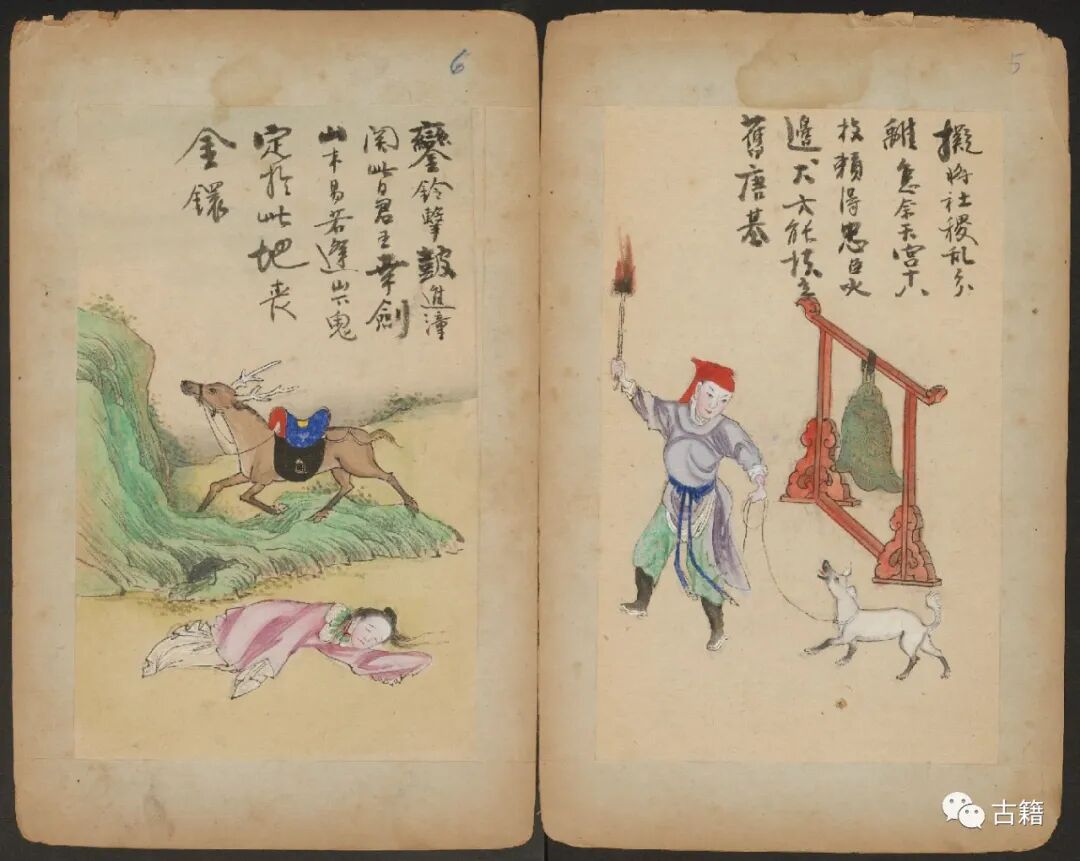 5
擬將社稷亂分
離怎奈天宮十八
枝賴得忠臣火
邊犬方能扶立
舊唐基
6
鑾鈴擊鼓進潼
関此日君王幸劍
山木易若逢山下鬼
定於此地喪
金鐶
古籍